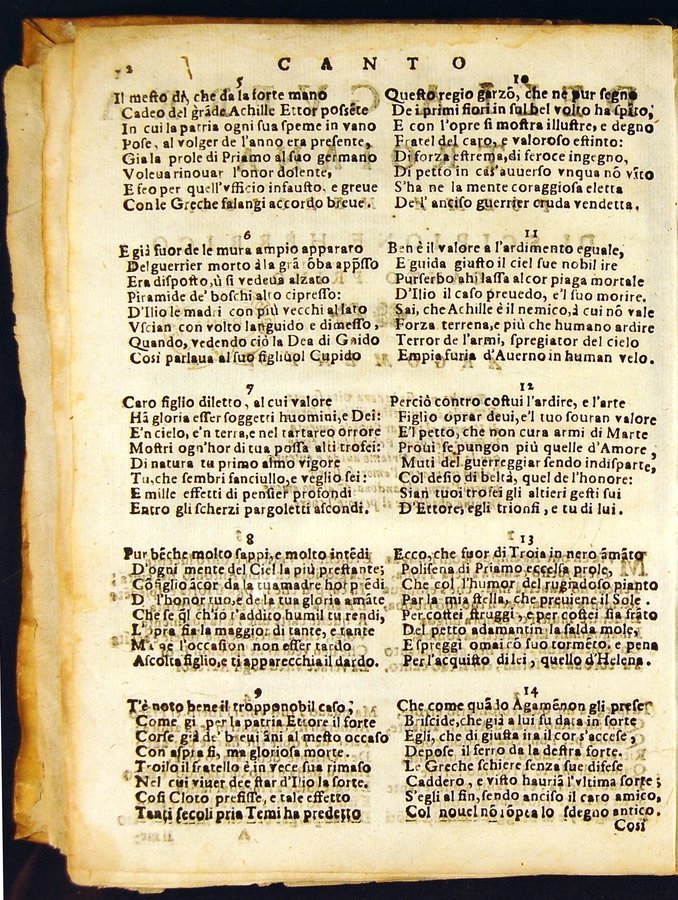 2
CANTO
5
Il mesto dì, che da la sorte mano
Cadeo del grāde Achille Ettor possēte
In cui la patria ogni sua speme in vano
Pose, al volger de l'anno era presente,
Gia la prole di Priamo al suo germano
Voleua rinouar l'onor dolente,
E feo per quell'vfficio infausto, e greue
Con le Greche falangi accordo breue.
6
E già fuor de le mura ampio apparato
Del guerrier morto à la grā ōba app̄sso
Era disposto, ù si vedeua alzato
Piramide de' boschi alto cipresso:
D'Ilio le madri con più vecchi al lato
Vscian con volto languido e dimesso,
Quando, vedendo ciò la Dea di Gnido
Cosi parlaua al suo figliuol Cupido
7
Caro figlio diletto, al cui valore
Hā gloria esser soggetti huomini, e Dei:
E'n cielo, e'n terra, e nel tartareo orrore
Mostri ogn'hor di tua possa alti trofei:
Di natura tu primo almo vigore
Tu, che sembri fanciullo, e veglio sei:
E mille effetti di pensier profondi
Entro gli scherzi pargoletti ascondi.
8
Pur bēche molto sappi, e molto intēdi
D'ogni mente del Ciel la più prestante;
Cōsiglio ācor da la tua madre hor prēdi
D l'honor tuo, e de la tua gloria amāte
Che se q̄l ch'io t'addito, humil tu rendi,
L'opra fia la maggior di tante, e tante
Ma ne l'occasion non esser tardo
Ascolta figlio, e ti apparecchia il dardo.
9
T'è noto bene il tropponobil caso;
Come gì per la patria Ettore il forte
Corse già de' breui āni al mesto occaso
Con aspra sì, ma gloriosa morte.
Troilo il fratello è in vece sua rimaso
Nel cui viuer dee star d'Ilio la sorte.
Cosi Cloto prefisse, e tale effetto
Tanti secoli pria Temi ha predetto
10
Questo regio garzō, che ne pur segno
De i primi fiori in sul bel volto ha spito,
E con l'opre si mostra illustre, e degno
Fratel del caro, e valoroso estinto:
Di forza estrema, di feroce ingegno,
Di petto in cas'auuerso vnqua nō vīto
S'ha ne la mente coraggiosa eletta
De l'anciso guerrier cruda vendetta.
11
Ben è il valore a l'ardimento eguale,
E guida giusto il ciel sue nobil ire
Purserbo ahi lassa al cor piaga mortale
D'Ilio il caso preuedo, e'l suo morire.
Sai, che Achille è il nemico, à cui nō vale
Forza terrena, e più che humano ardire
Terror de l'armi, spregiator del cielo
Empia furia d'Auerno in human velo.
12
Perciò contro costui l'ardire, e l'arte
Figlio oprar deui, e'l tuo souran valore
E'l petto, che non cura armi di Marte
Proui se pungon più quelle d'Amore,
Muti del guerreggiar sendo indisparte,
Col desio di beltà, quel de l'honore:
Sian tuoi trofei gli altieri gesti sui
D'Ettore, egli trionfi, e tu di lui.
13
Ecco, che fuor di Troia in nero āmāto
Polisena di Priamo eccelsa prole,
Che col l'humor del rugiadoso pianto
Par la mia stella, che preuiene il Sole.
Per costei struggi, e per costei sia frāto
Del petto adamantin la salda mole,
E spreggi omai cō suo tormēto, e pena
Per l'acquisto di lei, quello d'Helena.
14
Che come quādo Agamēnon gli prese
Briseide, che già a lui fu data in sorte
Egli, che di giusta ira il cor s'accese,
Depose il ferro da la destra forte.
Le Greche schiere senza sue difese
Caddero, e visto hauriā l'vltima sorte;
S'egli al fin, sendo anciso il caro amico,
Col nouel nō rōpea lo sdegno antico.
Cosi